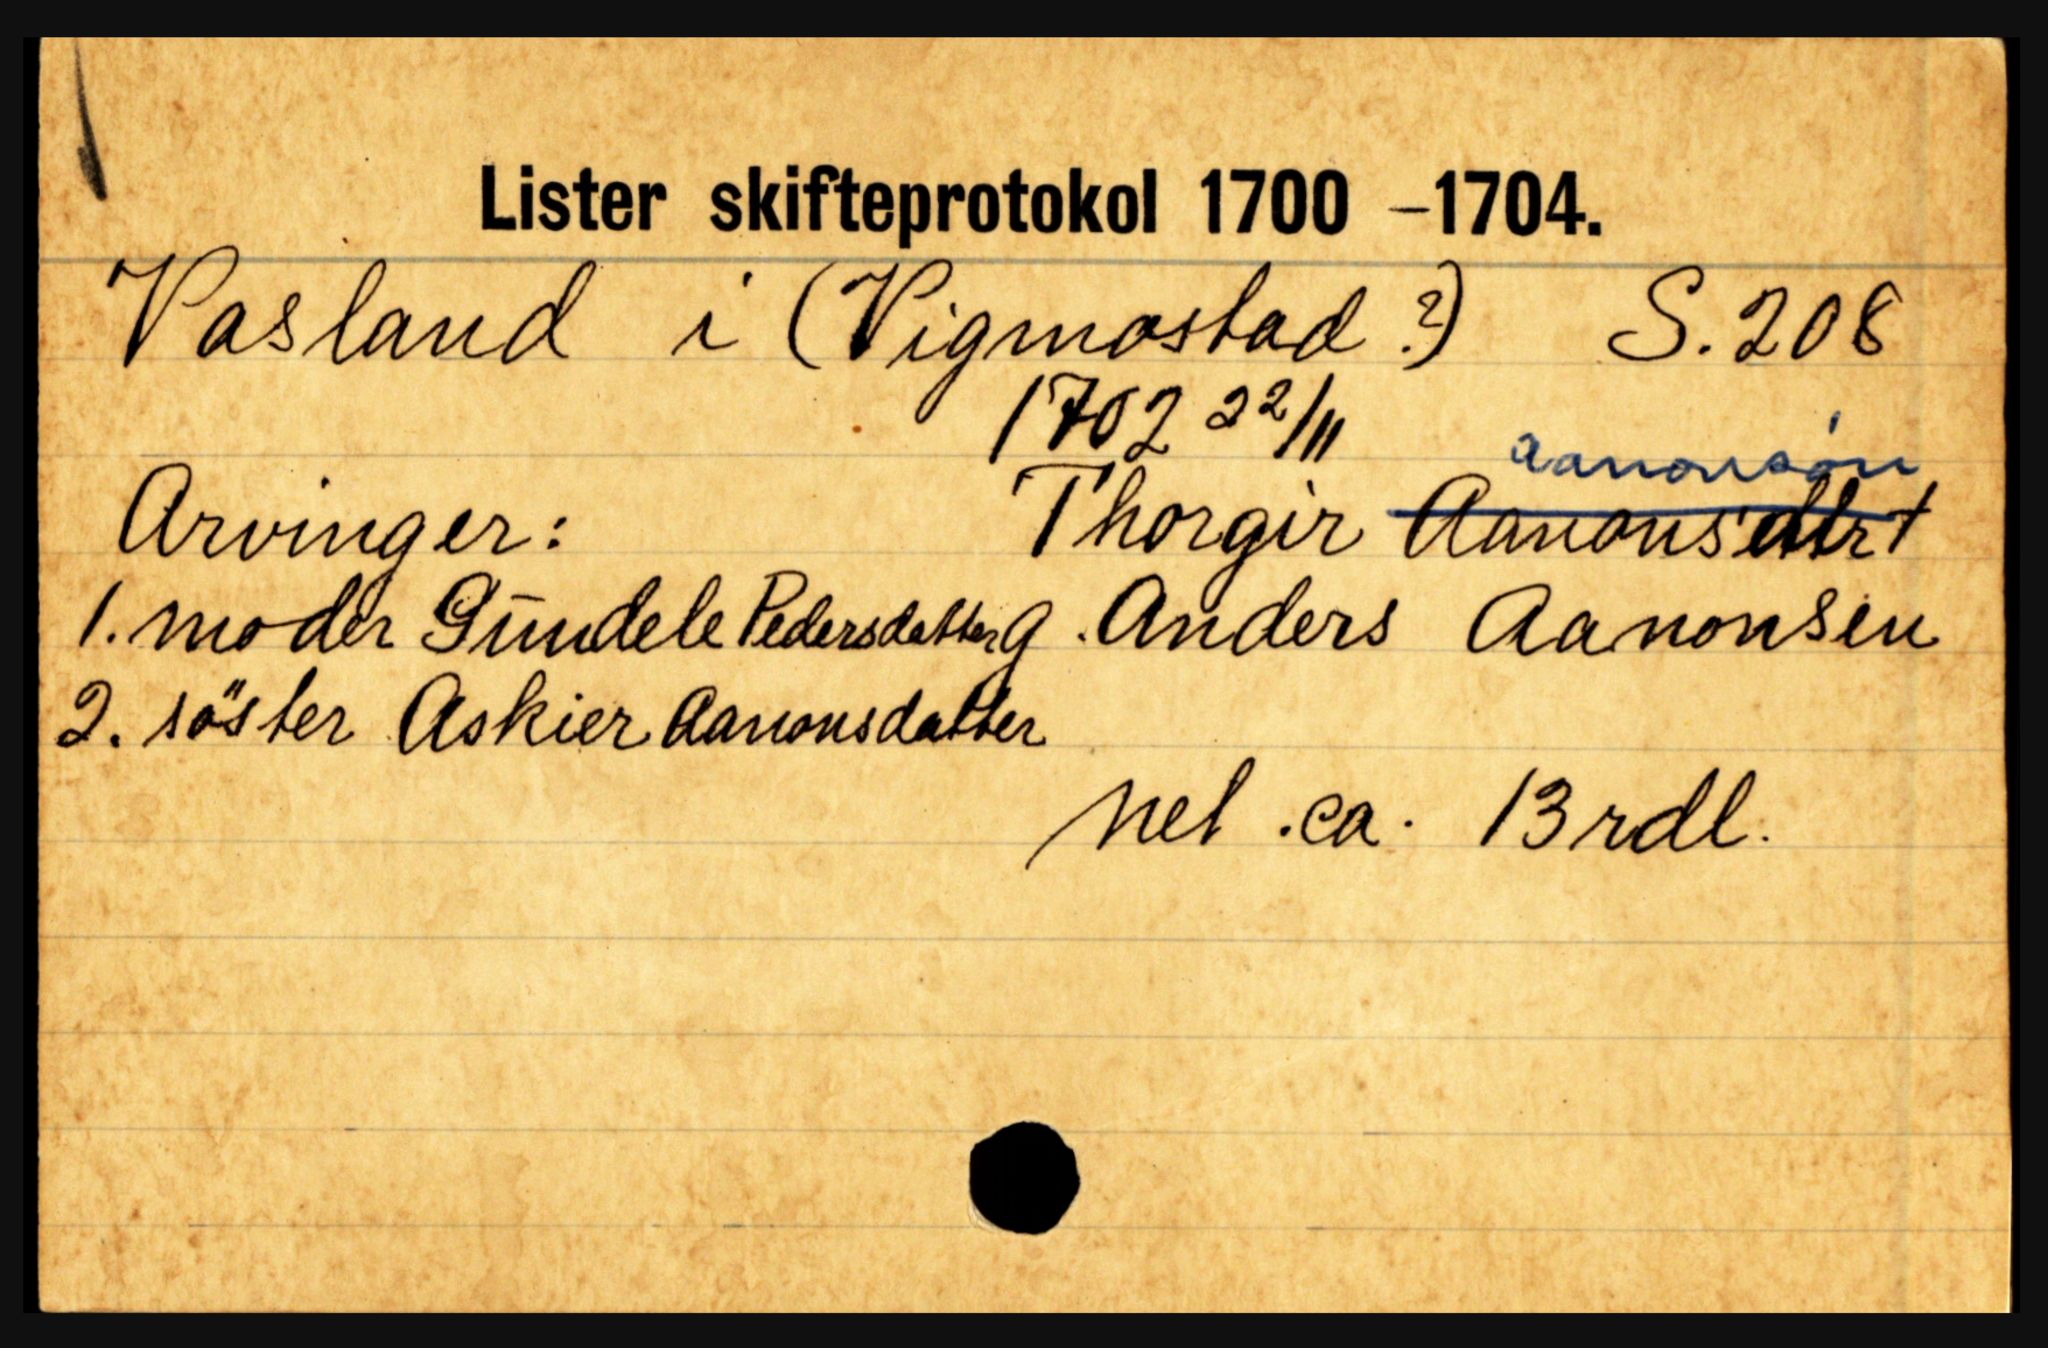 Lister skifteprotokol 1700 –1704.
Vasland i (Vigmostad ?) S. 208
1702 22/11
aanonsón
Arvinger: Thorgir Aanonsdtr †
1. moder Gündele Pedersdatter g. Anders Aanonsen
2. söster Askier Aanonsdatter
net .ca. 13 rdl.